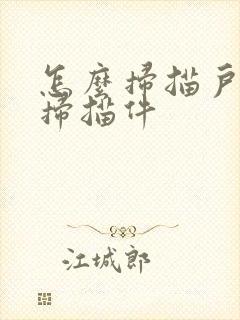 怎麼掃描戶
掃描件
江城郎